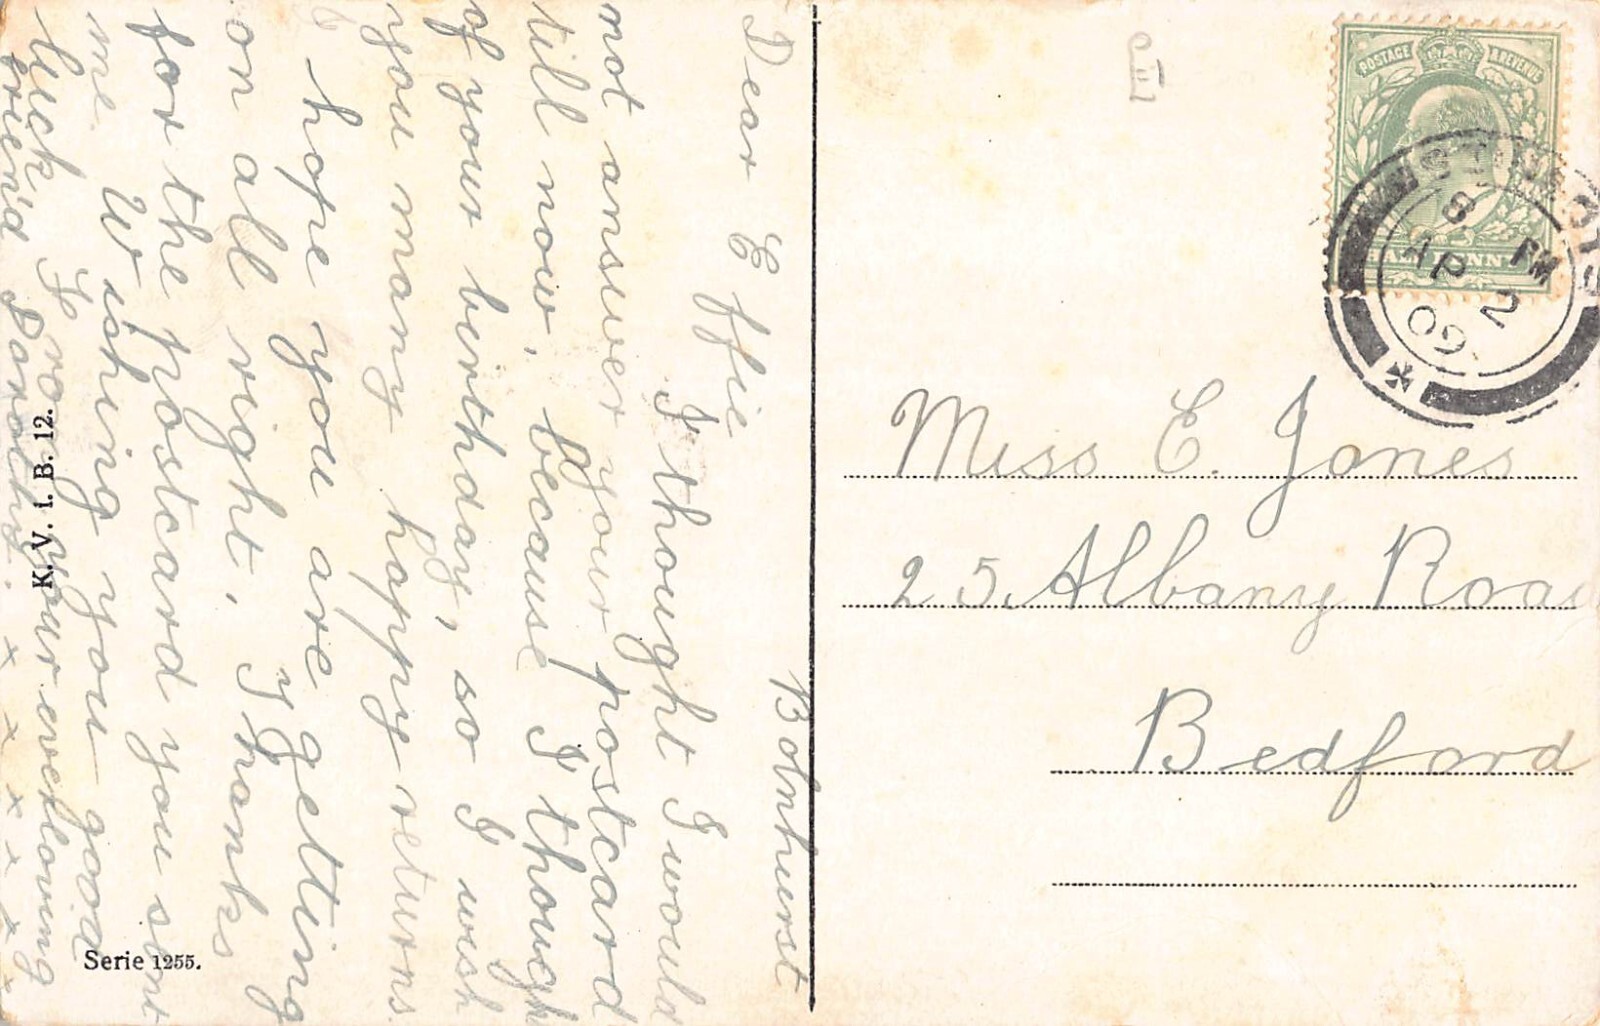 Bolnhurst
Dear Effie
I thought I would
not answer your postcard
till now, because I though
of your birthday, so I wish
you many happy returns
I hope you are getting
on all right. Thanks
for the postcard you sent
me Wishing you good
luck From your everloving
friend Dorothy. x x x x x x
K. V. i. B. 12.
Serie 1255.
POSTAGE & REVENUE
HALFPENNY
8 PM
AP 2
09
Miss E. Jones
25 Albany Road
Bedford